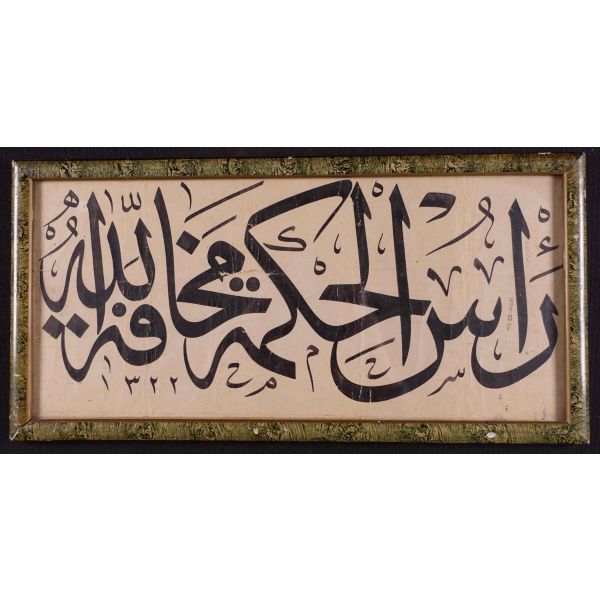 رأس الحكمة مخافة الله
١٣٢٢